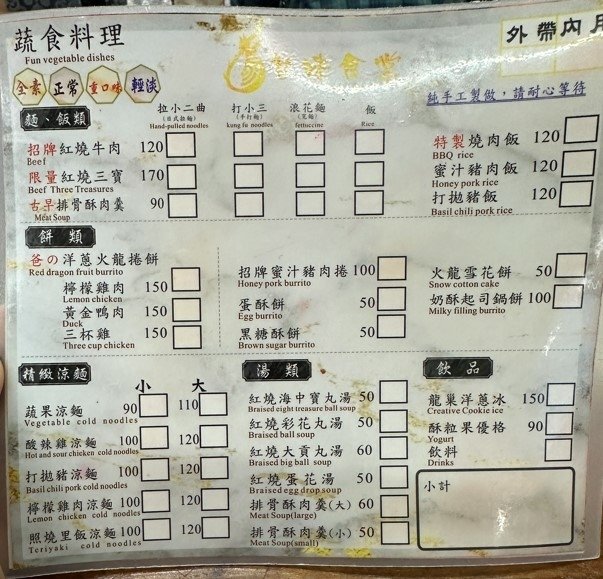 蔬食料理
Fun vegetable dishes
食堂
外帶 內用
全素 正常 重口味 輕淡
純手工製做，請耐心等待
麵、飯類
拉小二曲 打小三 浪花麵 飯
(日式拉麵) (手打麵) (寬麵)
Hand-pulled noodles kung fu noodles fettuccine Rice
招牌紅燒牛肉 120
Beef
限量紅燒三寶 170
Beef Three Treasures
古早排骨酥肉羹 90
Meat Soup
特製燒肉飯 120
BBQ rice
蜜汁豬肉飯 120
Honey pork rice
打拋豬飯 120
Basil chili pork rice
餅 類
爸の洋蔥火龍捲餅
Red dragon fruit burrito
檸檬雞肉 150
Lemon chicken
黃金鴨肉 150
Duck
三杯雞 150
Three cup chicken
招牌蜜汁豬肉捲 100
Honey pork burrito
蛋酥餅 50
Egg burrito
黑糖酥餅 50
Brown sugar burrito
火龍雪花餅 50
Snow cotton cake
奶酥起司鍋餅 100
Milky filling burrito
精緻涼麵
小 大
蔬果涼麵 90 110
Vegetable cold noodles
酸辣雞涼麵 100 120
Hot and sour chicken cold noodles
打拋豬涼麵 100 120
Basil chili pork cold noodles
檸檬雞肉涼麵 100 120
Lemon chicken cold noodles
照燒里飯涼麵 100 120
Teriyaki cold noodles
湯 類
紅燒海中寶丸湯 50
Braised eight treasure ball soup
紅燒彩花丸湯 50
Braised ball soup
紅燒大貢丸湯 60
Braised big ball soup
紅燒蛋花湯 50
Braised egg drop soup
排骨酥肉羹(大) 60
Meat Soup(large)
排骨酥肉羹(小) 50
Meat Soup(small)
飲 品
龍巢洋蔥冰 150
Creative Cookie ice
酥粒果優格 90
Yogurt
飲料
Drinks
小計